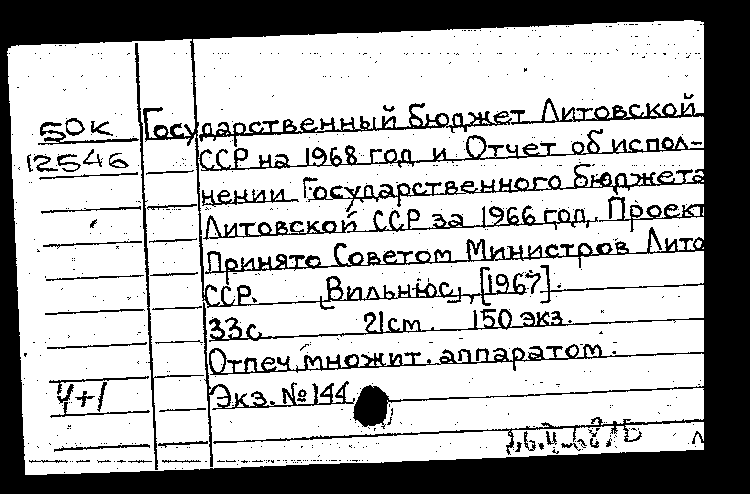 50К Государственный бюджет Литовской
12546 ССР на 1968 год и Отчет об испол-
нении Государственного бюджета
Литовской ССР за 1966 год. Проект
Принято Советом Министров Лито
ССР. [Вильнюс], [1967].
33с 21cm. 150 экз.
Отпеч. множит. аппаратом.
Ч+1 Экз. №144